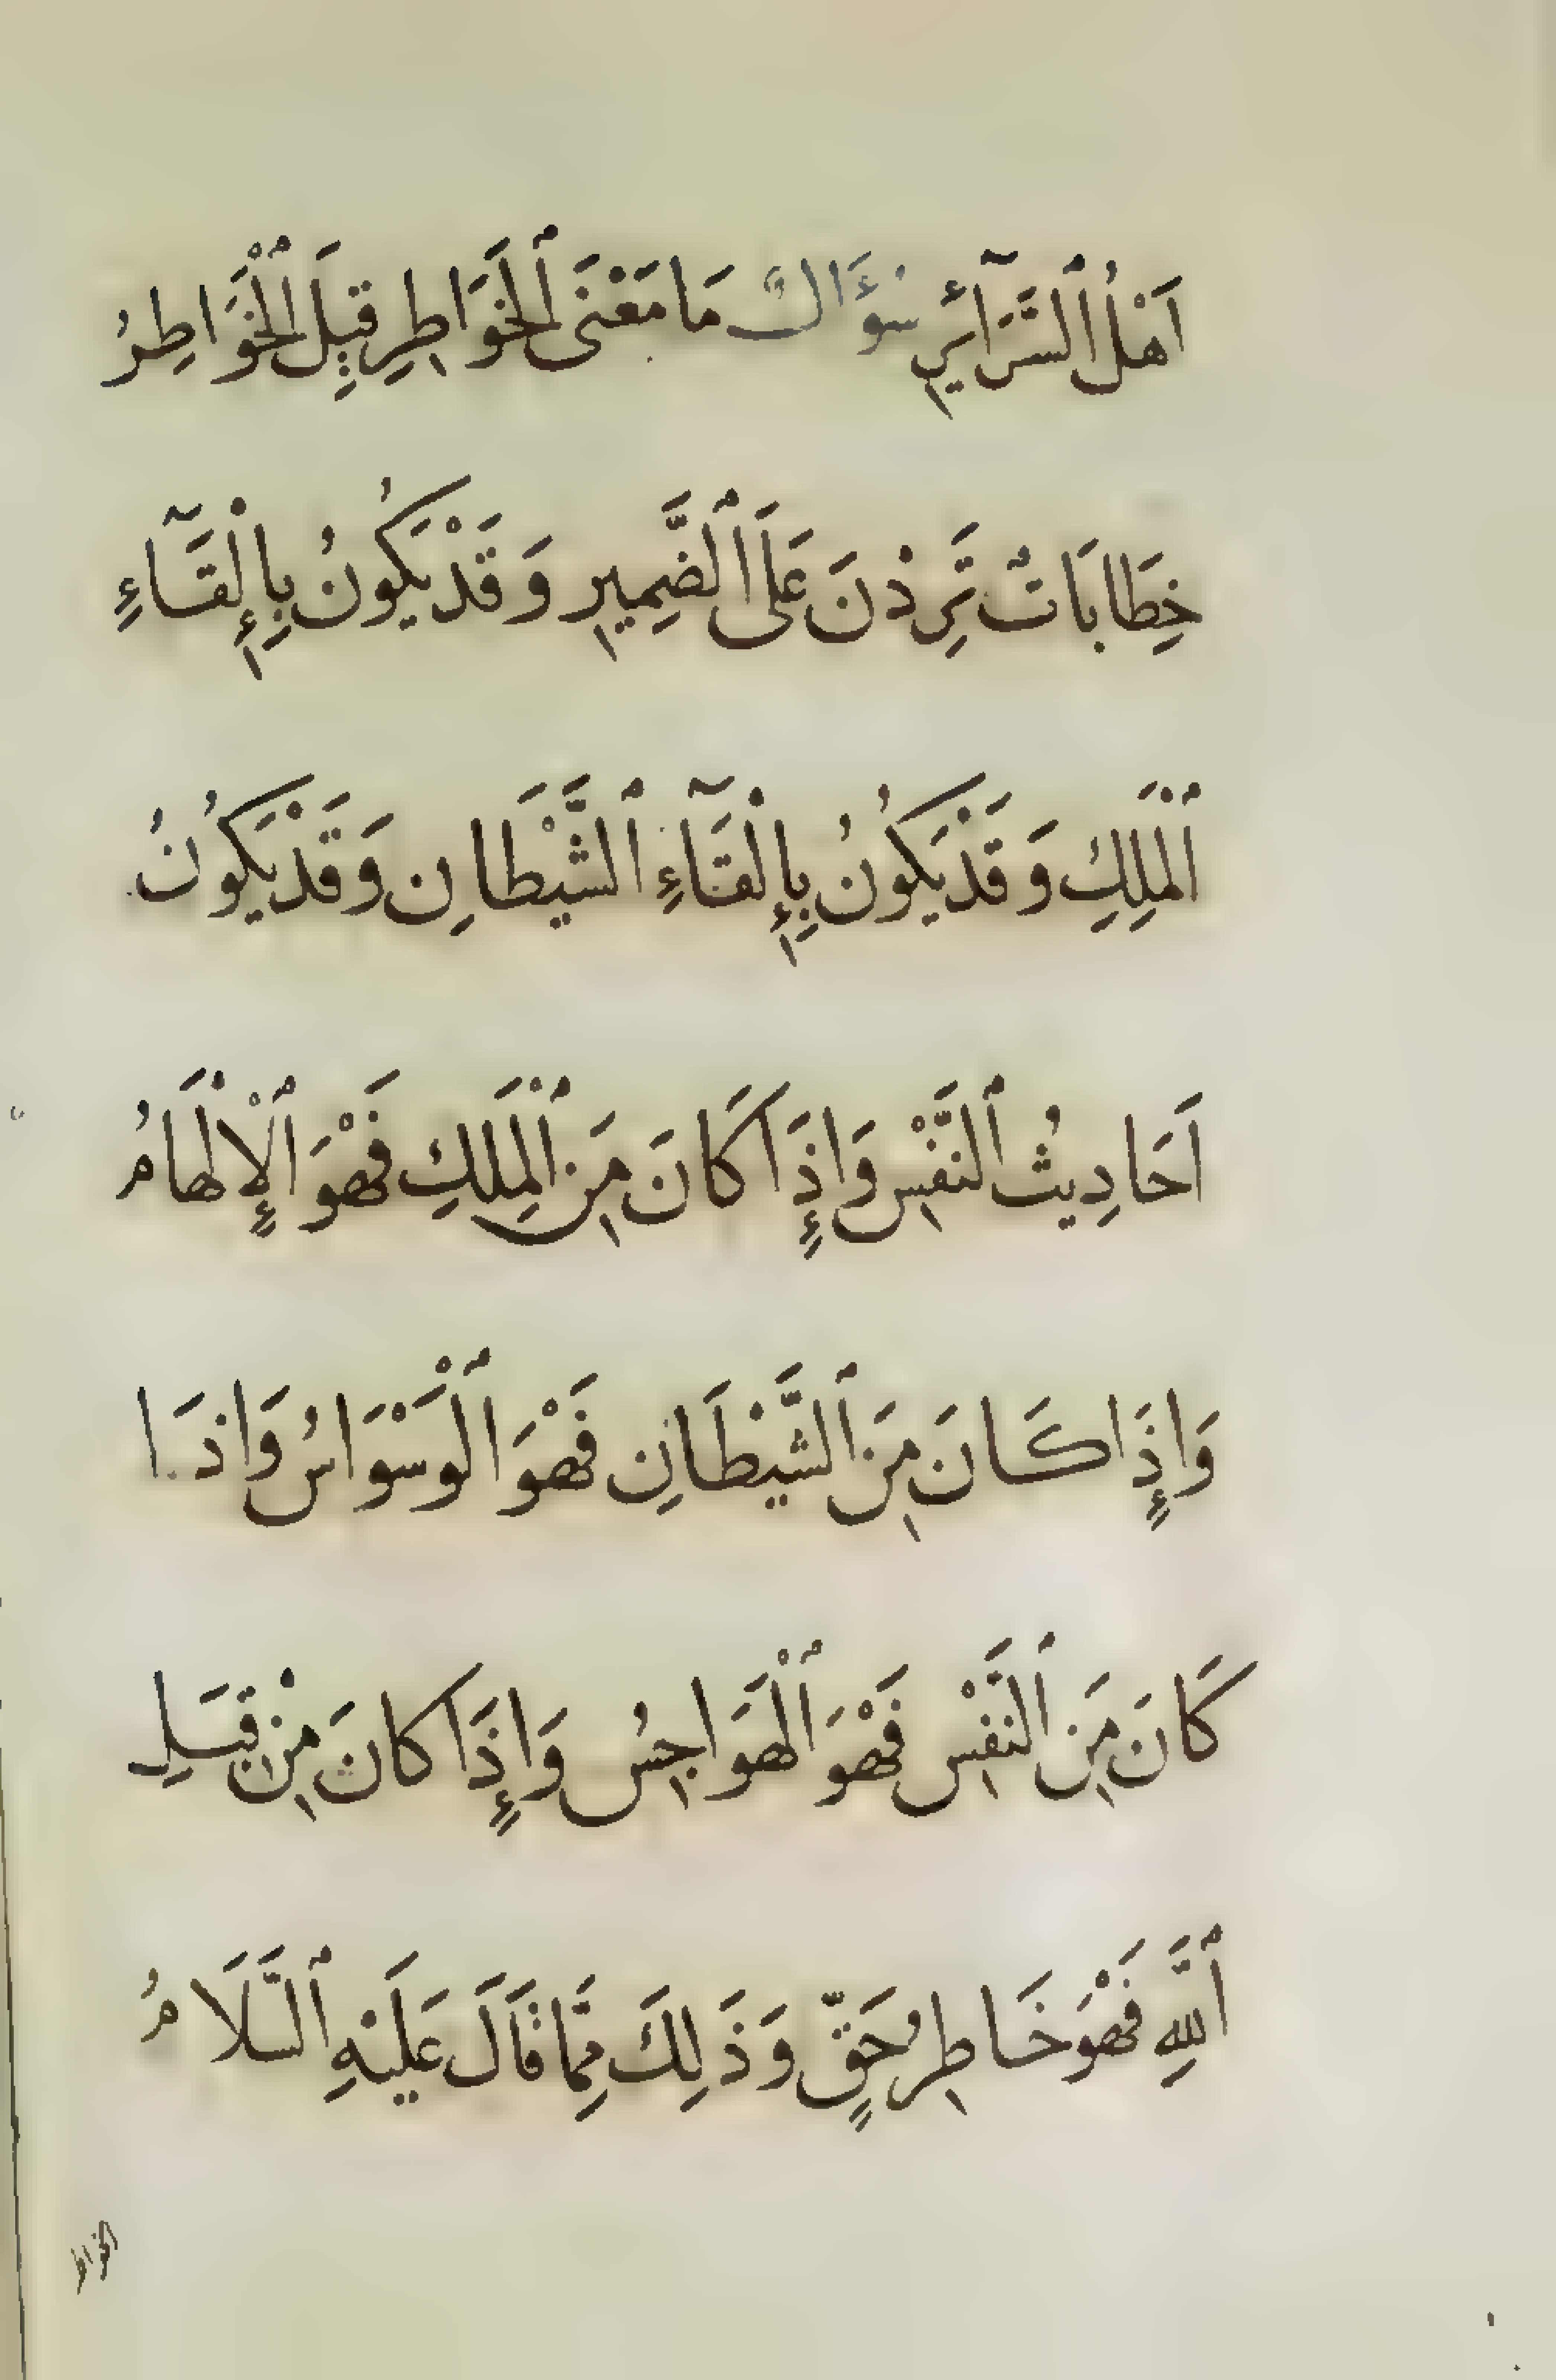 اَهْلُ ٱلسَّرَآئِرِ سُؤَالٌ مَا مَعْنَى ٱلْخَوَاطِرِ قِيلَ ٱلْخَوَاطِرُ
خِطَابَاتٌ تَرِدْنَ عَلَى ٱلضَّمِيرِ وَقَدْ يَكُونُ بِإِلْقَآءِ
ٱلْمَلَكِ وَقَدْ يَكُونُ بِإِلْقَآءِ ٱلشَّيْطَانِ وَقَدْ يَكُونُ
اَحَادِيثُ ٱلنَّفْسِ وَإِذَا كَانَ مِنَ ٱلْمَلَكِ فَهْوَ ٱلْإِلْهَامُ
وَإِذَا كَانَ مِنَ ٱلشَّيْطَانِ فَهْوَ ٱلْوَسْوَاسُ وَاذَا
كَانَ مِنَ ٱلنَّفْسِ فَهْوَ ٱلْهَوَاجِسُ وَإِذَا كَانَ مِنْ قِبَلِ
ٱللَّهِ فَهْوَ خَاطِرُ حَقٍّ وَذَلِكَ مِمَّا قَالَ عَلَيْهِ ٱلسَّلَامُ
الخواطر